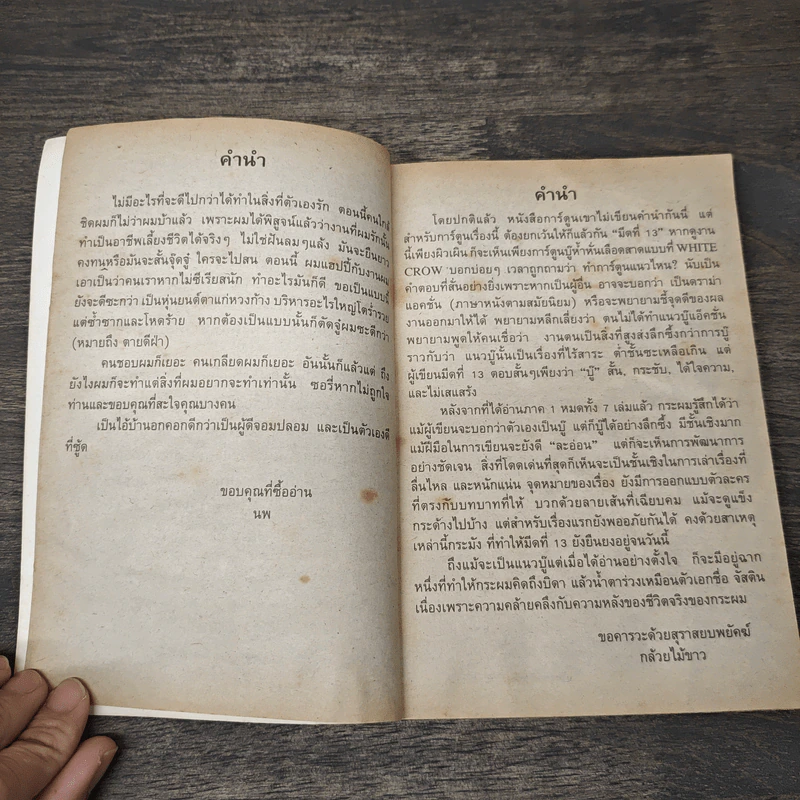 คำนำ
ไม่มีอะไรที่จะดีไปกว่าได้ทำในสิ่งที่ตัวเองรัก ตอนนี้คนใกล้
ชิดผมก็ไม่ว่าผมบ้าแล้ว เพราะผมได้พิสูจน์แล้วว่างานที่ผมรักนั้น
ทำเป็นอาชีพเลี้ยงชีวิตได้จริงๆ ไม่ใช่ฝันลมๆแล้ง มันจะยืนยาว
คงทนหรือมันจะสั้นจุ๊ดจู๋ ใครจะไปสน ตอนนี้ ผมแฮปปี้กับงานผม
เอาเป็นว่าคนเราหากไม่ซีเรียสนัก ทำอะไรมันก็ดี ขอเป็นแบบนี้
ยังจะดีซะกว่า เป็นหุ่นยนต์ตาแก่หวงก้าง บริหารอะไรใหญ่โตร่ำรวย
แต่ซ้ำซากและโหดร้าย หากต้องเป็นแบบนั้นก็ตัดจู๋ผมซะดีกว่า
(หมายถึง ตายดีฝ่า)
คนชอบผมก็เยอะ คนเกลียดผมก็เยอะ อันนั้นก็แล้วแต่ ถึง
ยังไงผมก็จะทำแต่สิ่งที่ผมอยากจะทำเท่านั้น ซอรี่หากไม่ถูกใจ
ท่านและขอบคุณที่สะใจคุณบางคน
เป็นไอ้บ้านอกคอกดีกว่าเป็นผู้ดีจอมปลอม และเป็นตัวเองดี
ที่ซู้ด
ขอบคุณที่ซื้ออ่าน
นพ
คำนำ
โดยปกติแล้ว หนังสือการ์ตูนเขาไม่เขียนคำนำกันนี้ แต่
สำหรับการ์ตูนเรื่องนี้ ต้องยกเว้นให้ก็แล้วกัน "มีดที่ 13" หากดูงาน
นี้เพียงผิวเผิน ก็จะเห็นเพียงการ์ตูนบู๊ห้ำหั่นเลือดสาดแบบที่ WHITE
CROW บอกบ่อยๆ เวลาถูกถามว่า ทำการ์ตูนแนวไหน? นับเป็น
คำตอบที่สั้นอย่างยิ่งเพราะหากเป็นผู้อื่น อาจจะบอกว่า เป็นดราม่า
แอคชั่น (ภาษาหนังตามสมัยนิยม) หรือจะพยายามชี้จุดดีของผล
งานออกมาให้ได้ พยายามหลีกเลี่ยงว่า ตนไม่ได้ทำแนวบู๊แอ็คชั่น
พยายามพูดให้คนเชื่อว่า งานตนเป็นสิ่งที่สูงส่งลึกซึ้งกว่าการบู๊
ราวกับว่า แนวบู๊นั้นเป็นเรื่องที่ไร้สาระ ต่ำชั้นซะเหลือเกิน แต่
ผู้เขียนมีดที่ 13 ตอบสั้นๆเพียงว่า "บู๊" สั้น, กระชับ, ได้ใจความ,
และไม่เสแสร้ง
หลังจากที่ได้อ่านภาค 1 หมดทั้ง 7 เล่มแล้ว กระผมรู้สึกได้ว่า
แม้ผู้เขียนจะบอกว่าตัวเองเป็นบู๊ แต่ก็บู๊ได้อย่างลึกซึ้ง มีชั้นเชิงมาก
แม้ฝีมือในการเขียนจะยังดี "ละอ่อน" แต่ก็จะเห็นการพัฒนาการ
อย่างชัดเจน สิ่งที่โดดเด่นที่สุดก็เห็นจะเป็นชั้นเชิงในการเล่าเรื่องที่
ลื่นไหล และหนักแน่น จุดหมายของเรื่อง ยังมีการออกแบบตัวละคร
ที่ตรงกับบทบาทที่ให้ บวกด้วยลายเส้นที่เฉียบคม แม้จะดูแข็ง
กระด้างไปบ้าง แต่สำหรับเรื่องแรกยังพออภัยกันได้ คงด้วยสาเหตุ
เหล่านี้กระมัง ที่ทำให้มีดที่ 13 ยังยืนยงอยู่จนวันนี้
ถึงแม้จะเป็นแนวบู๊แต่เมื่อได้อ่านอย่างตั้งใจ ก็จะมีอยู่ฉาก
หนึ่งที่ทำให้กระผมคิดถึงบิดา แล้วน้ำตาร่วงเหมือนตัวเอกชื่อ จัสติน
เนื่องเพราะความคล้ายคลึงกับความหลังของชีวิตจริงของกระผม
ขอคารวะด้วยสุราสยบพยัคฆ์
กล้วยไม้ขาว